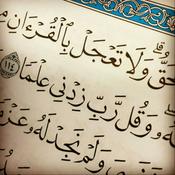 ٱلْحَقُّ ۗ وَلَا تَعْجَلْ بِٱلْقُرْءَانِ
وَقُل رَّبِّ زِدْنِى عِلْمًا ١١٤
وَلَمْ نَجِدْ لَهُۥ عَزْمًا